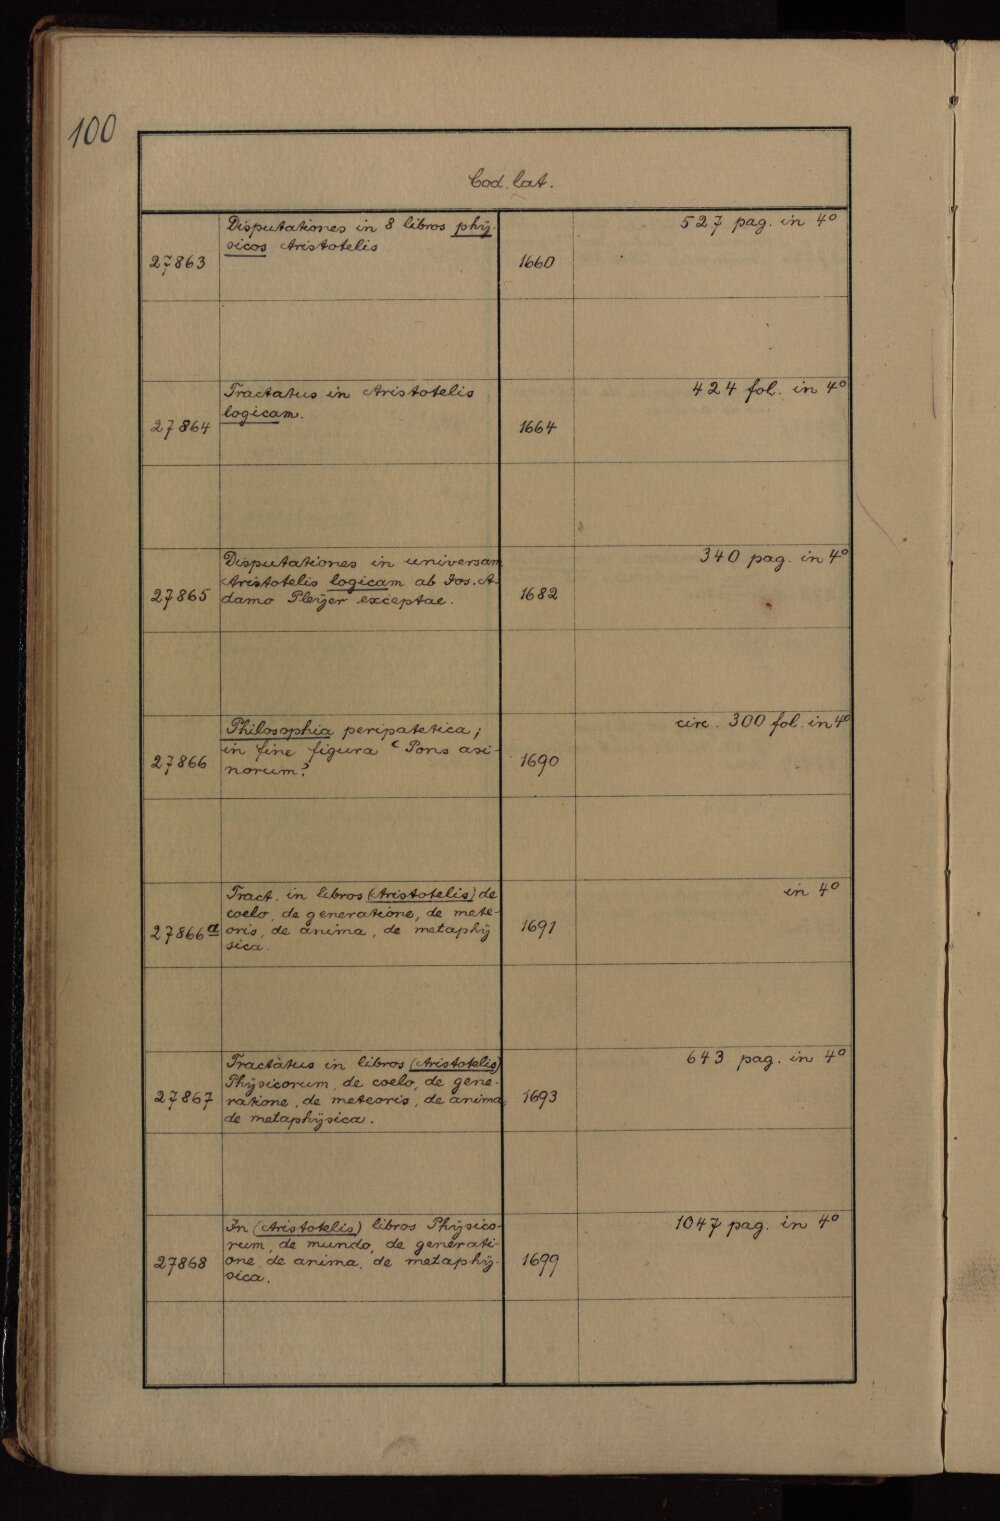 100
Cod. lat.
Disputationes in 8 libros phÿ-
sicos Aristotelis
27863
1660
527 pag. in 4º
Tractatus in Aristotelis
logicam.
27864
1664
424 fol. in 4º
Disputationes in universam
Aristotelis logicam ab Jos. A-
damo Pleÿer exceptae.
27865
1682
340 pag. in 4º
Philosophia peripatetica;
in fine figura "Pons asi-
norum"
27866
1690
circ. 300 fol. in 4º
Tract. in libros (Aristotelis) de
coelo, de generatione, de mete-
oris, de anima, de metaphÿ
sica.
27866a
1691
in 4º
Tractatus in libros (Aristotelis)
Phÿsicorum, de coelo, de gene-
ratione, de meteoris, de anima,
de metaphÿsica.
27867
1693
643 pag. in 4º
In (Aristotelis) libros Phÿsico-
rum, de mundo, de generati-
one, de anima, de metaphÿ-
sica.
27868
1699
1047 pag. in 4º